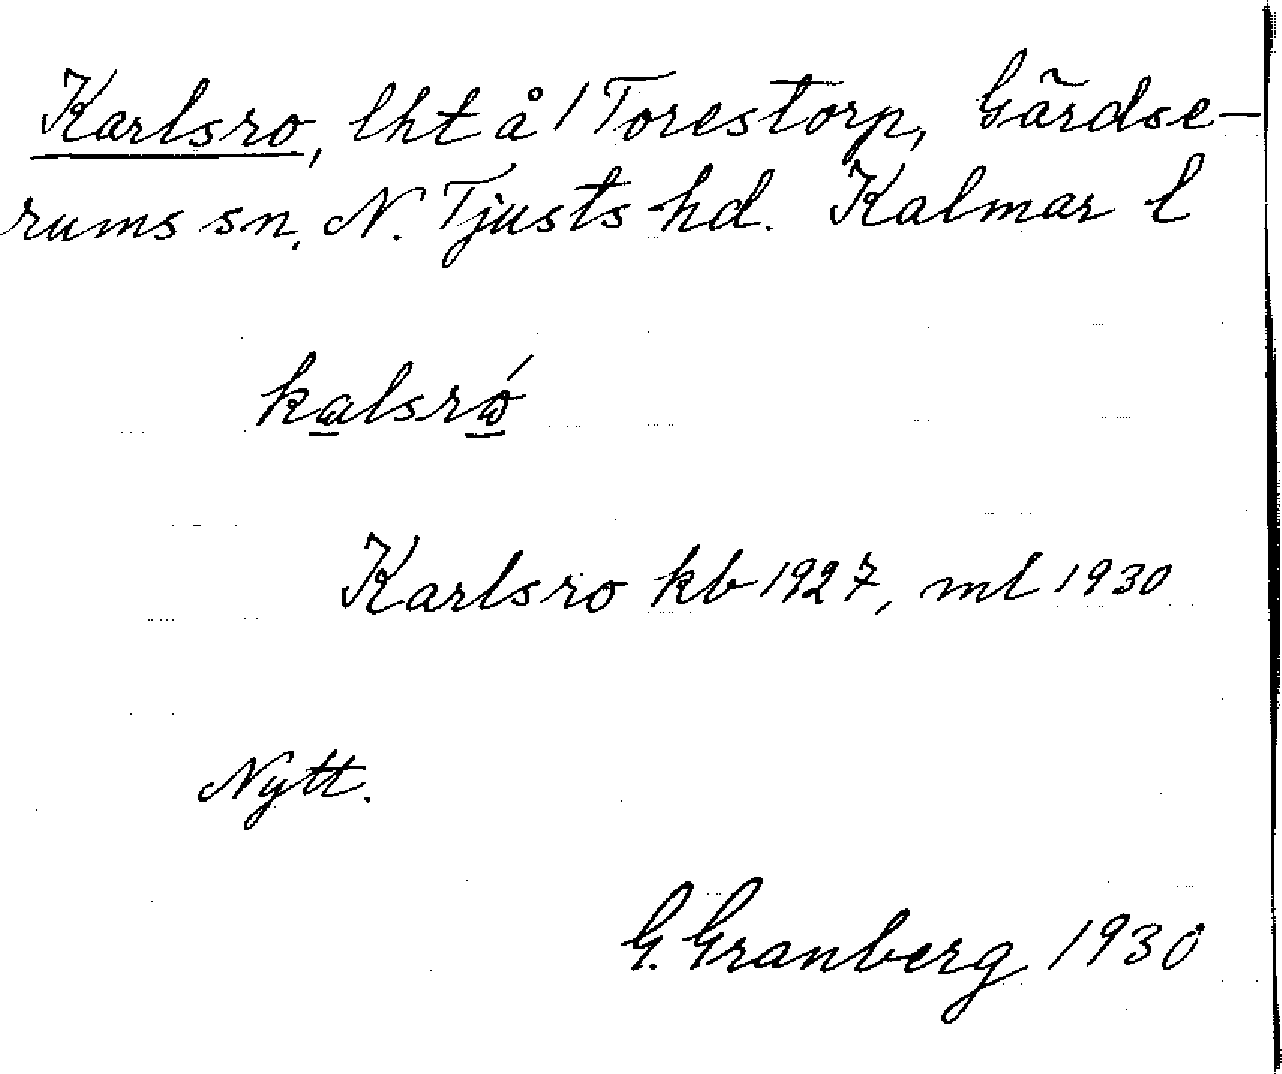 Karlsro, lht å 1 Torestorp, Gärdse-
rums sn, N. Tjusts hd. Kalmar l
kalsró
Karlsro kb 1927, ml 1930
Nytt.
G. Granberg 1930